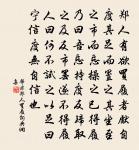 鄭人有欲買履者先自
度其足而置之其坐至
之市而忘操之已得履
乃曰吾忘持度反歸取
之及反市罷遂不得履
人曰何不試之以足曰
寧信度無自信也